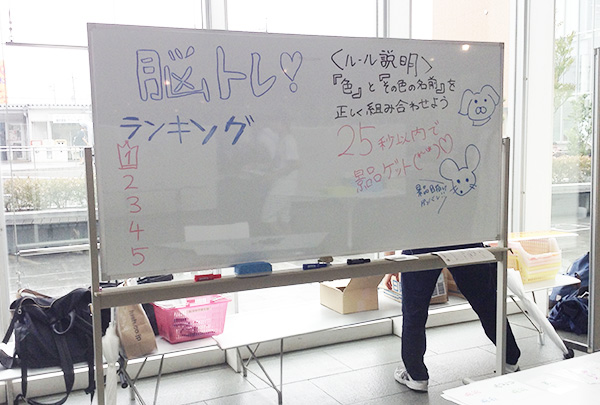 脳トレ♡!
ランキング
1
2
3
4
5
<ルール説明>
『色』と『その色の名前』を
正しく組み合わせよう
25秒以内で
景品ゲット
景品目指して